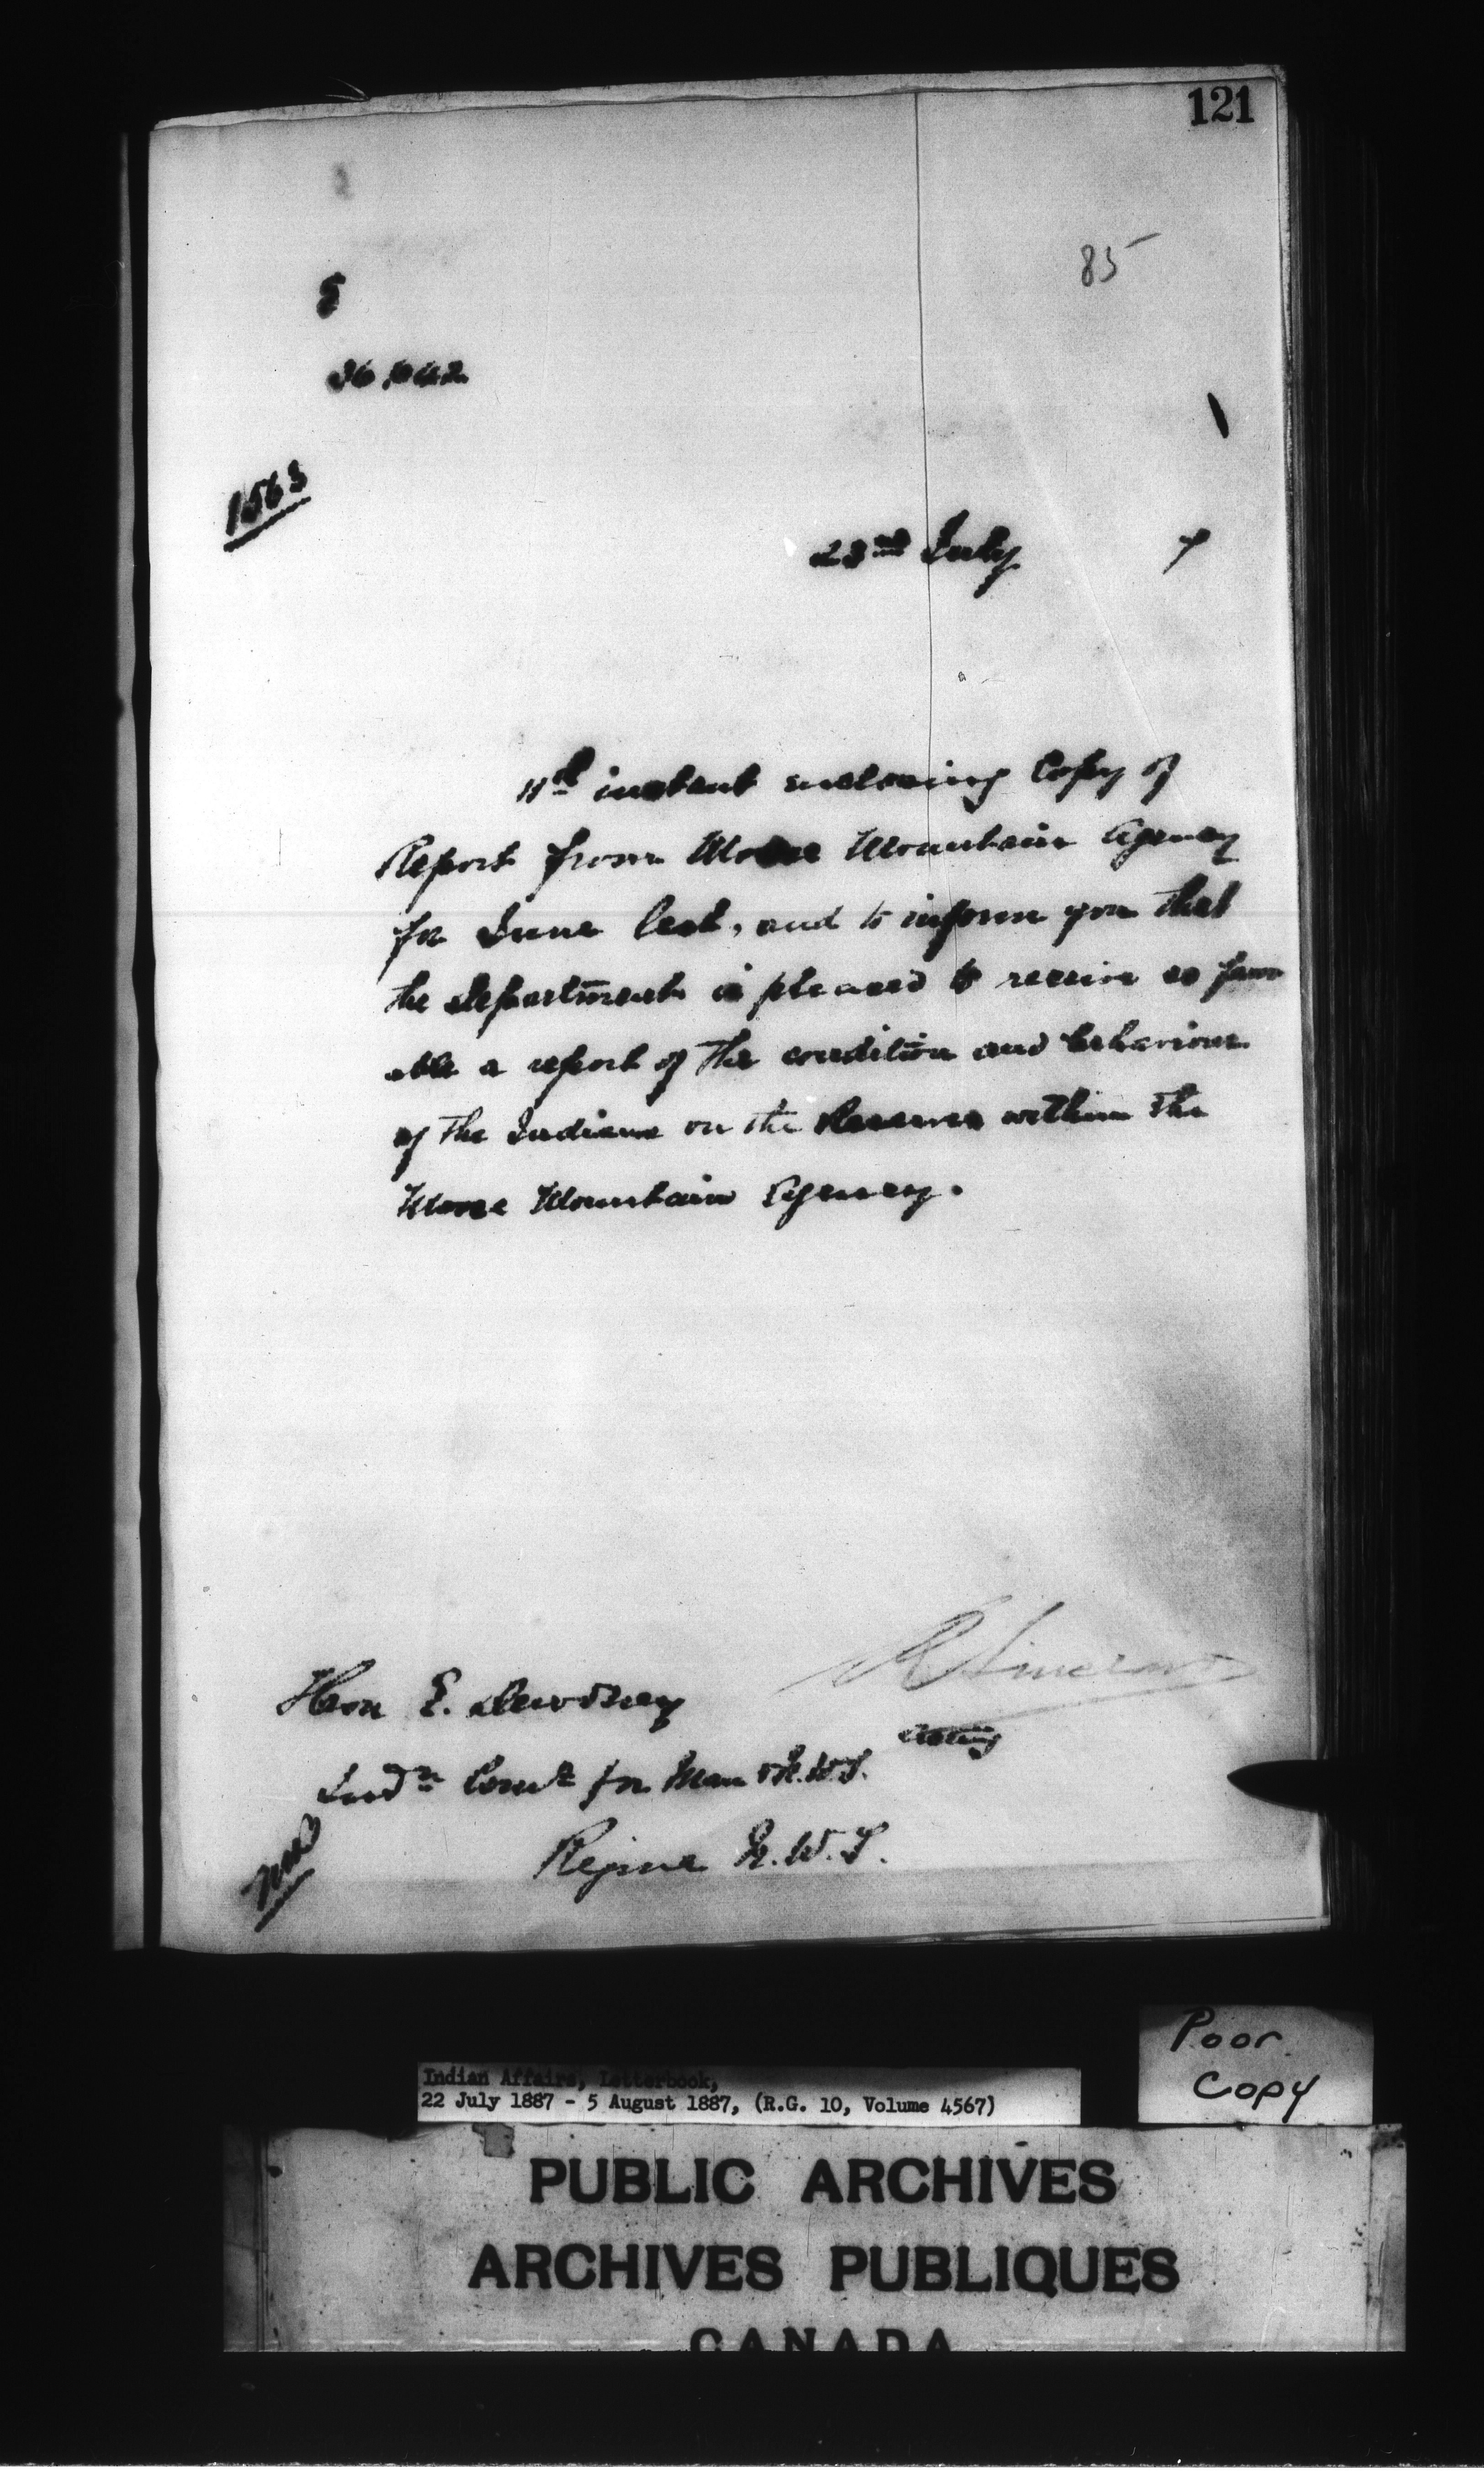 121
85
5
1563
23rd July 7
11th instant enclosing Copy of
Report from Moose Mountain Agency
for June last, and to inform you that
the Department is pleased to receive so favor
able a report of the condition and behaviour
of the Indians on the Reserves within the
Moose Mountain Agency.
R Sinclair
Acting
Hon E. Dewdney
Indn Comr for Man & N.W.T.
Regina N.W.T.
Poor
Copy
Indian Affairs, Letterbook,
22 July 1887 - 5 August 1887, (R.G. 10, Volume 4567)
PUBLIC ARCHIVES
ARCHIVES PUBLIQUES
CANADA